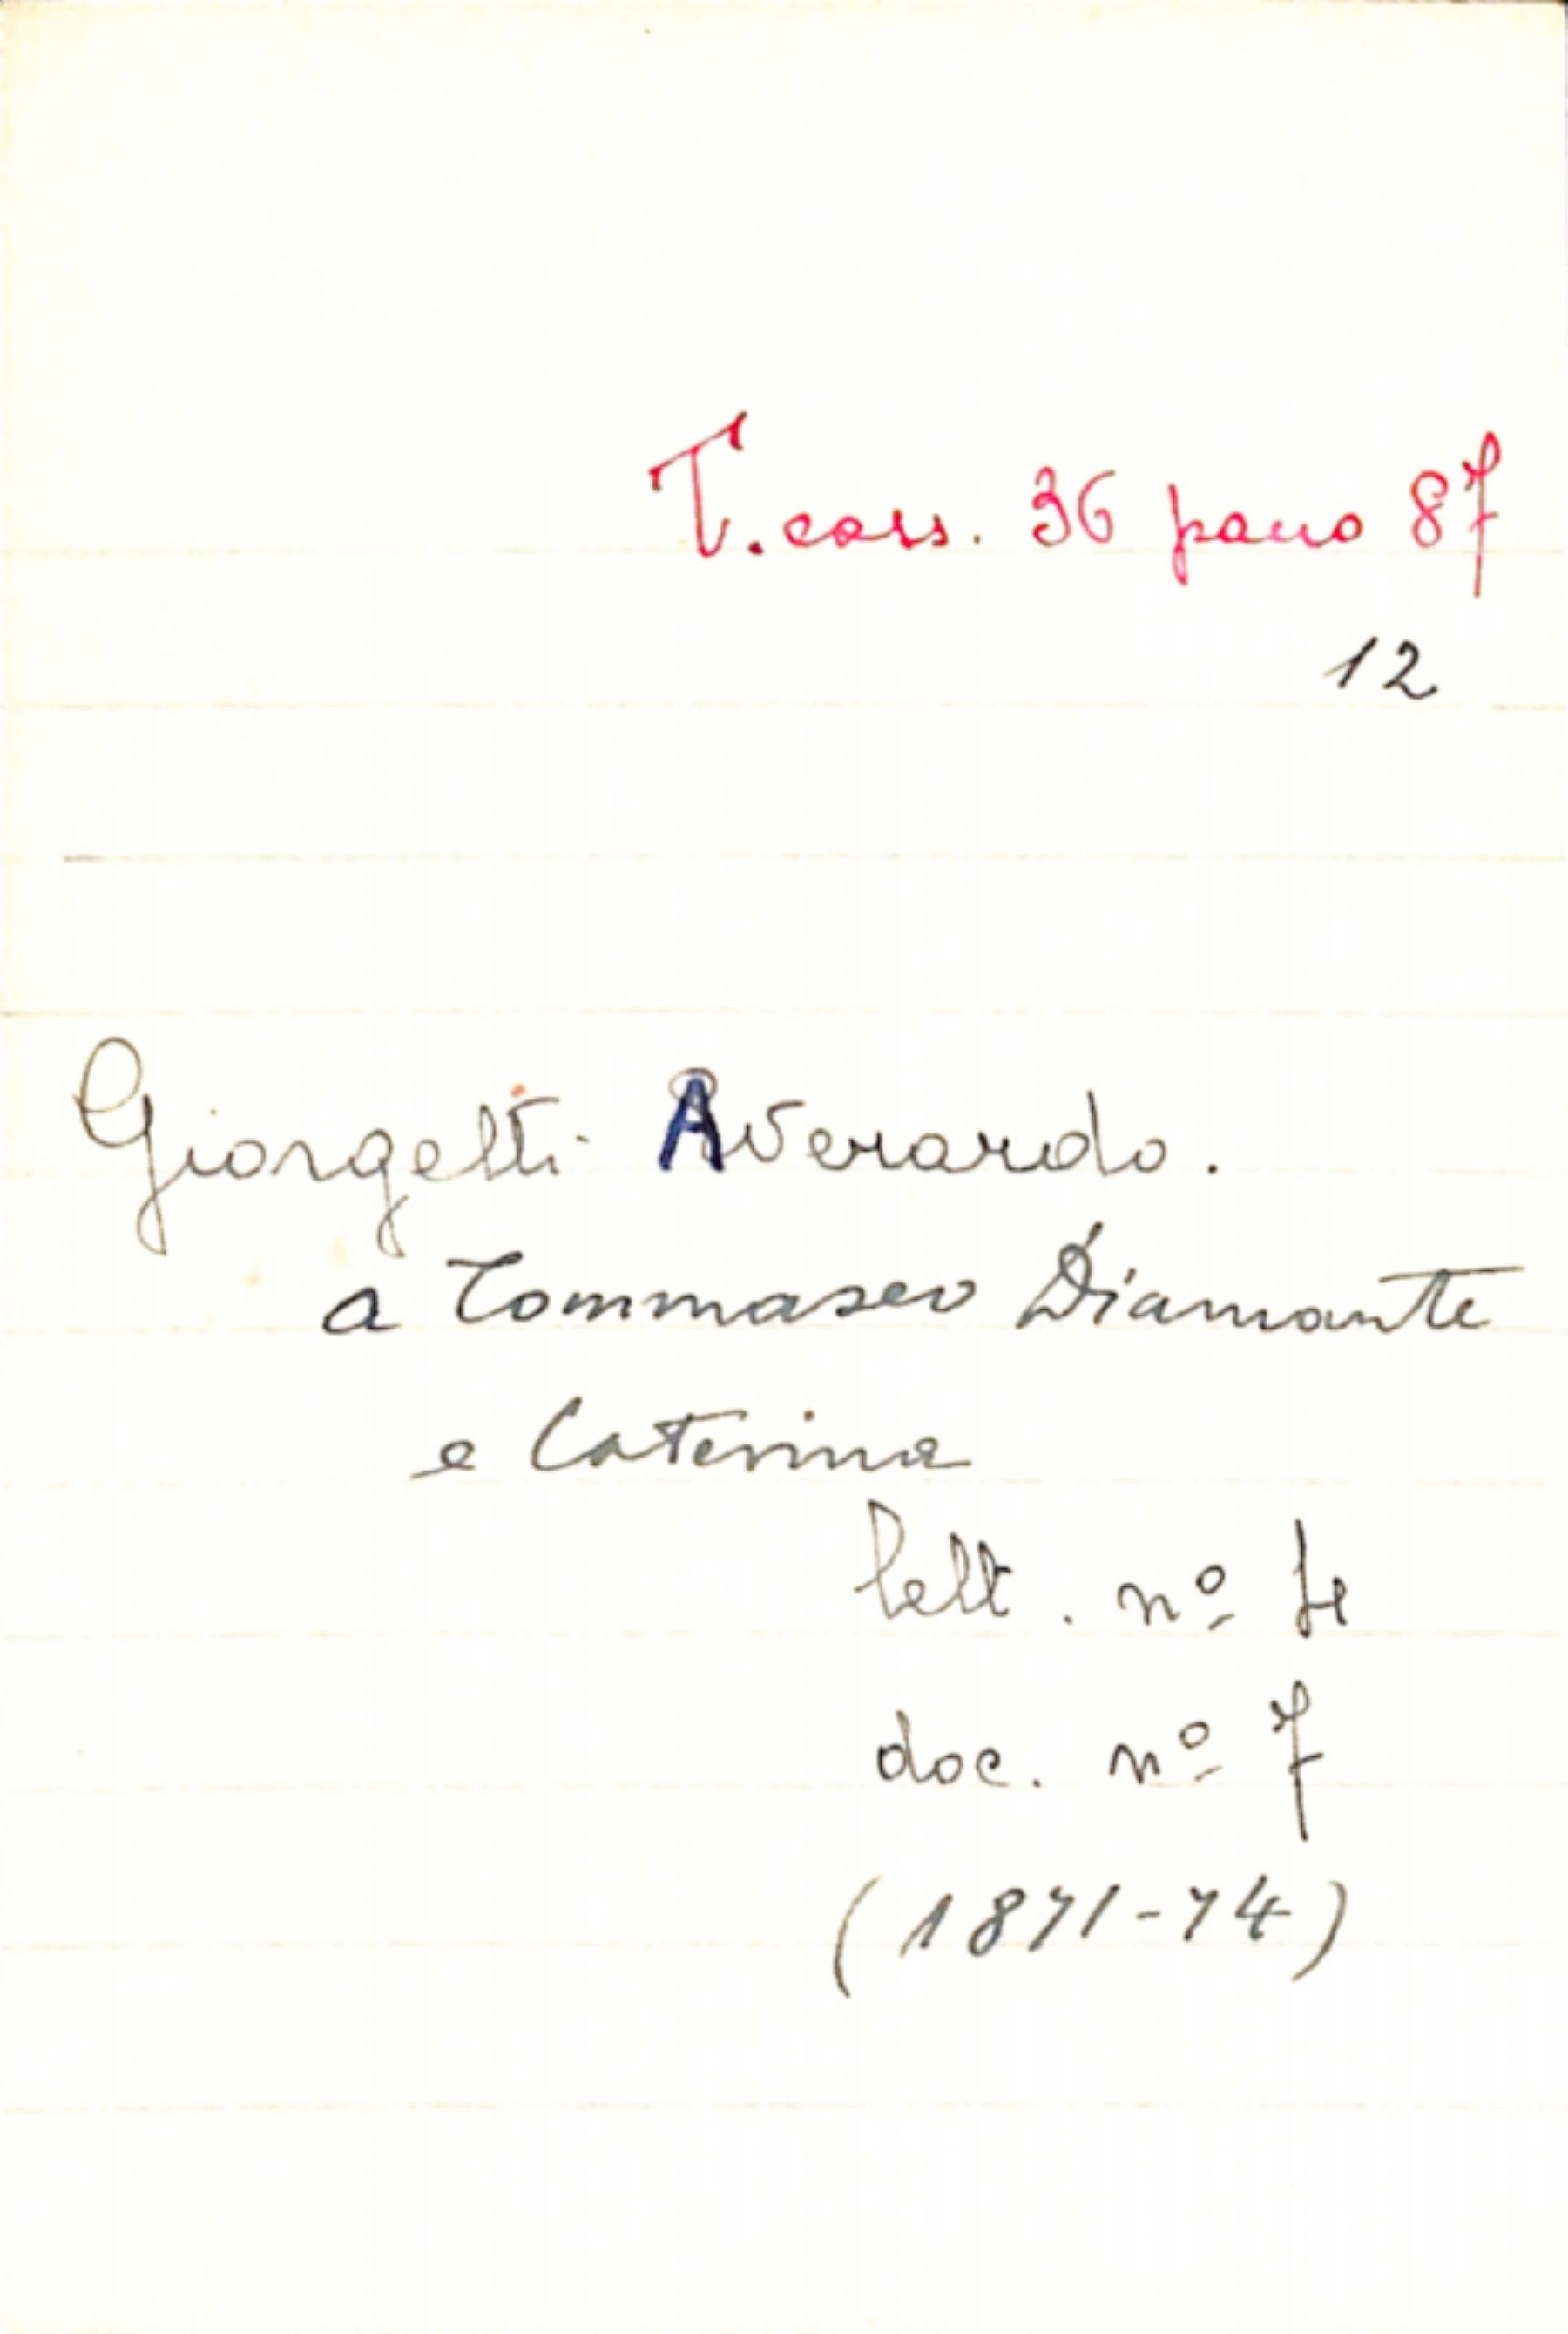 T. cass. 36 pacco 87
12
Giorgetti Averardo.
a Tommaseo Diamante
e Caterina
lett. nº 4
doc. nº 7
(1871-74)